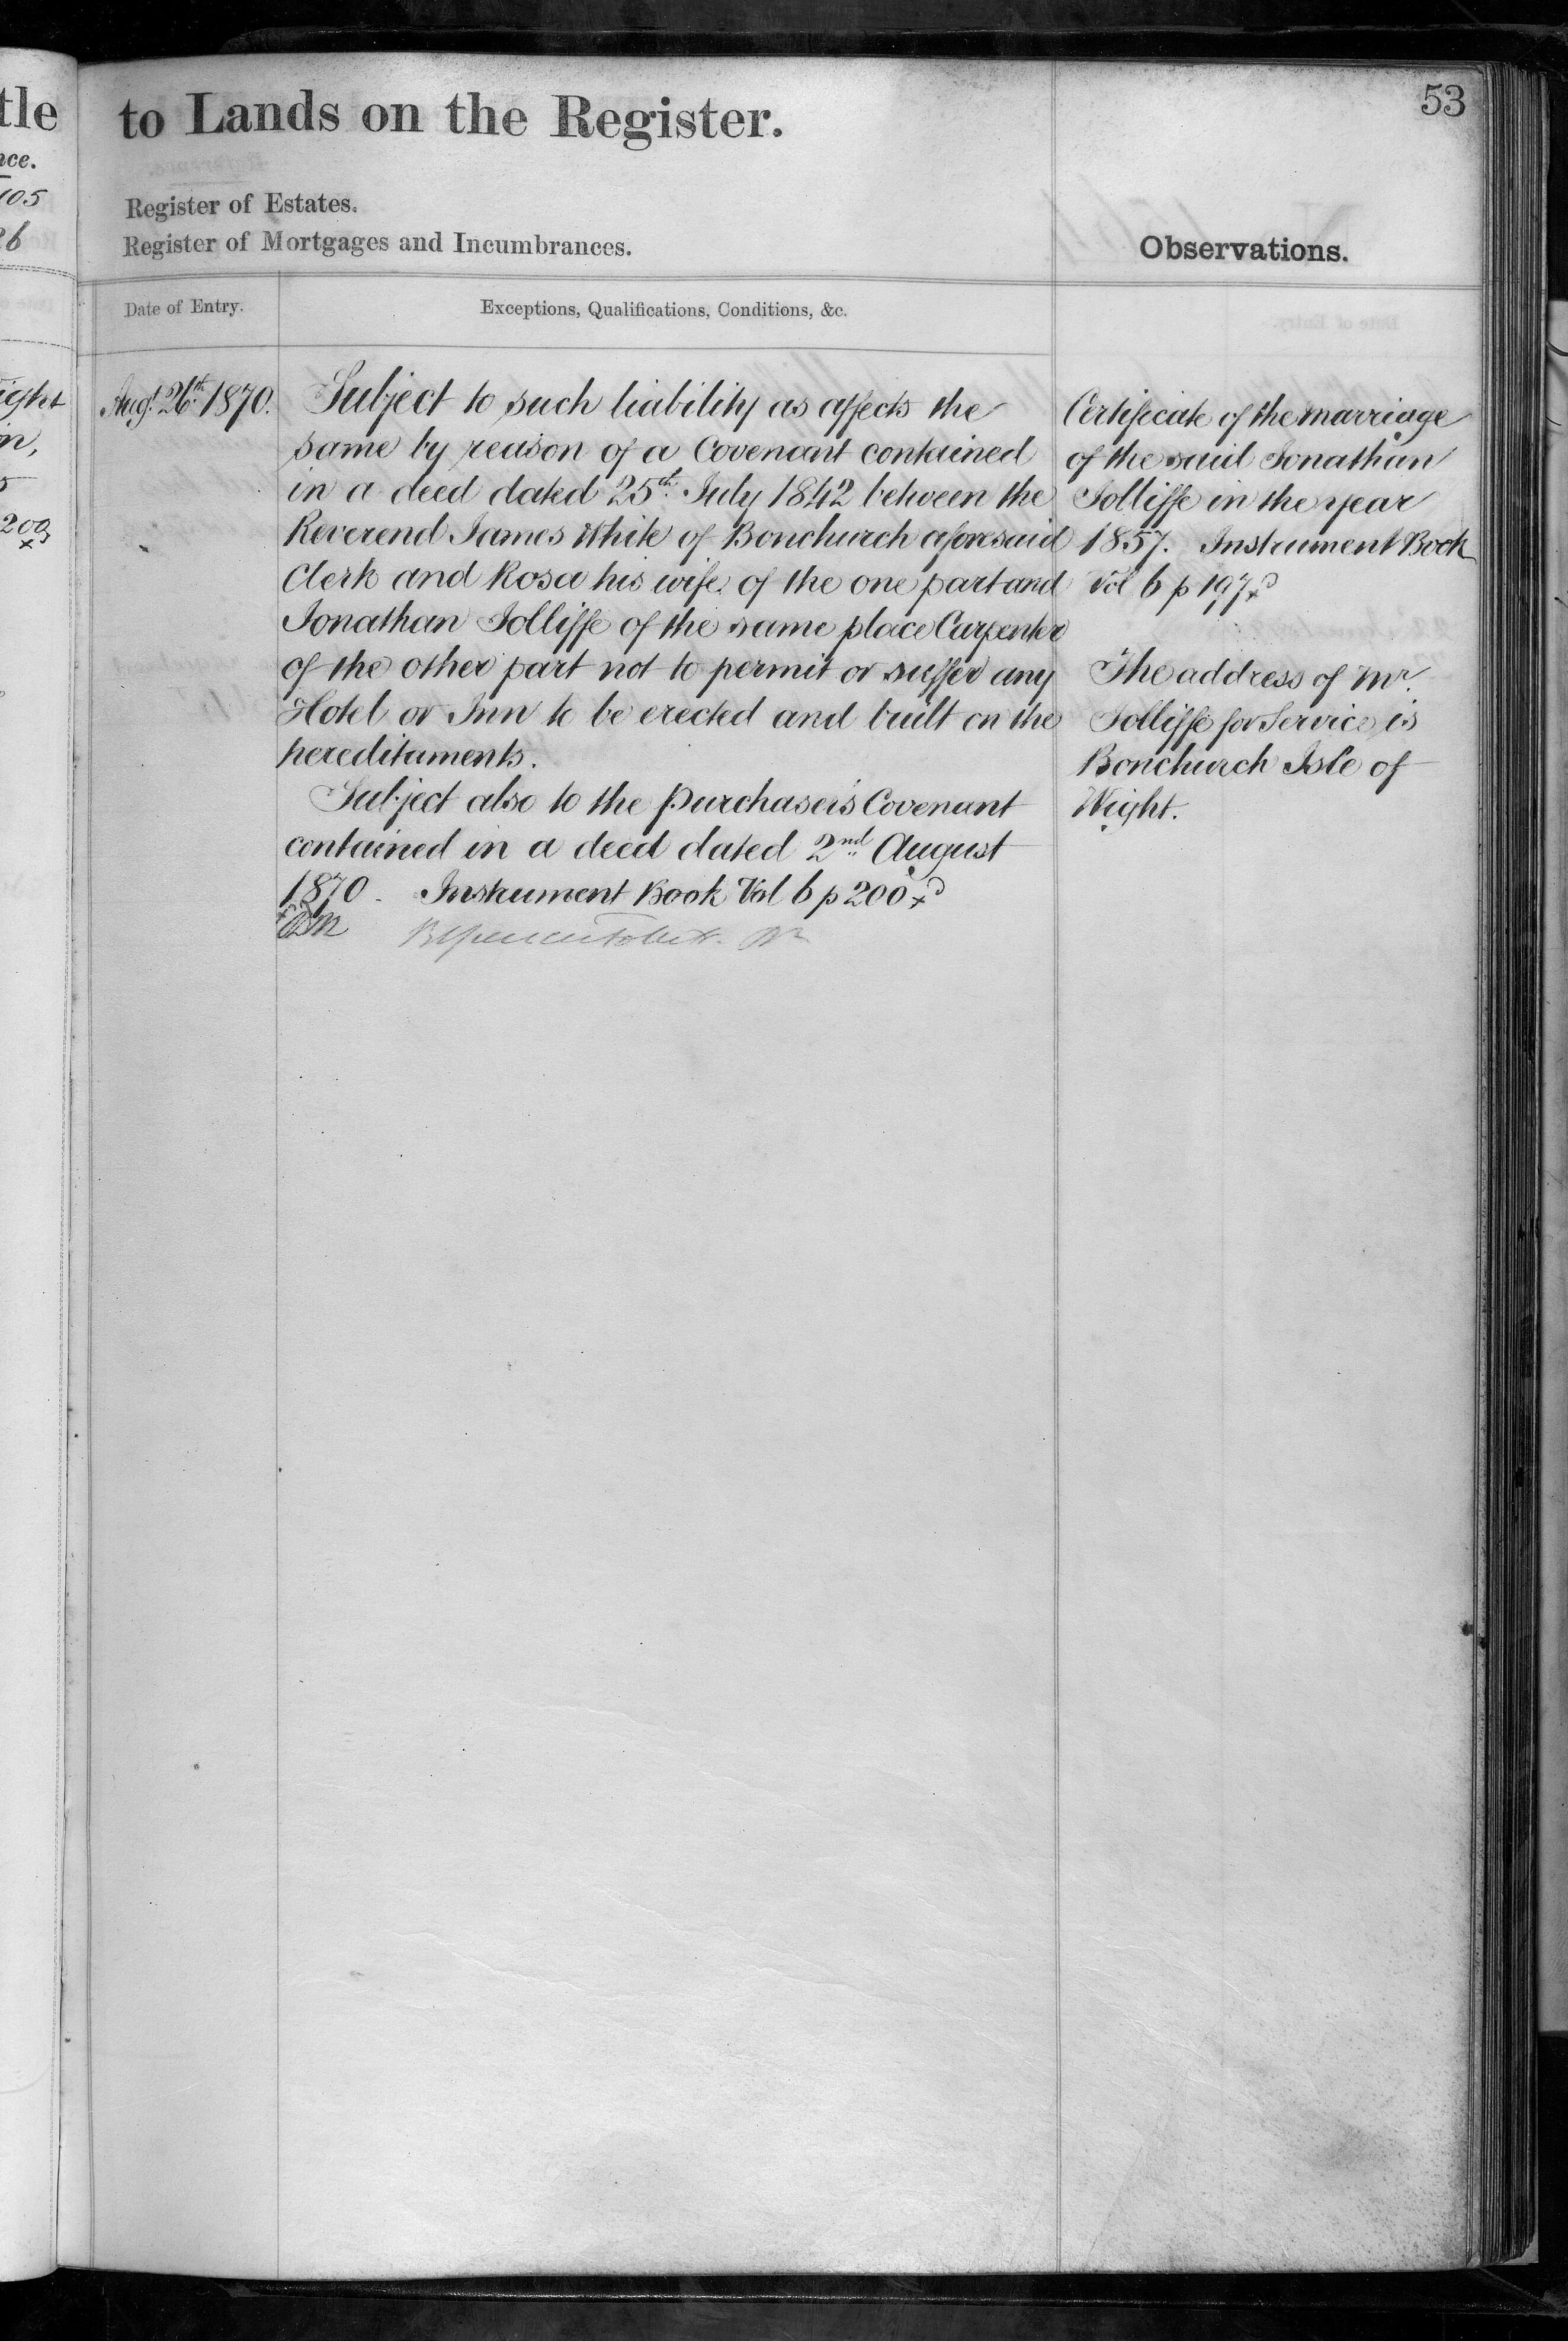 tle
nce.
105
26
ight
n,
5
200
to Lands on the Register.
53
Register of Estates.
Register of Mortgages and Incumbrances.
Observations.
Date of Entry.
Exceptions, Qualifications, Conditions, &c.
Augt. 26th. 1870.
Subject to such liability as affects the
same by reason of a Covenant contained
in a deed dated 25th. July 1842 between the
Reverend James White of Bonchurch aforesaid
Clerk and Rosa his wife of the one part and
Jonathan Jolliffe of the same place Carpenter
of the other part not to permit or suffer any
Hotel or Inn to be erected and built on the
hereditaments.
Subject also to the Purchaser's Covenant
contained in a deed dated 2nd. August
1870. Instrument Book Vol 6 p 200
Certificate of the marriage
of the said Jonathan
Jolliffe in the year
1857. Instrument Book
Vol 6 p 197
The address of Mr.
Jolliffe for Service is
Bonchurch Isle of
Wight.